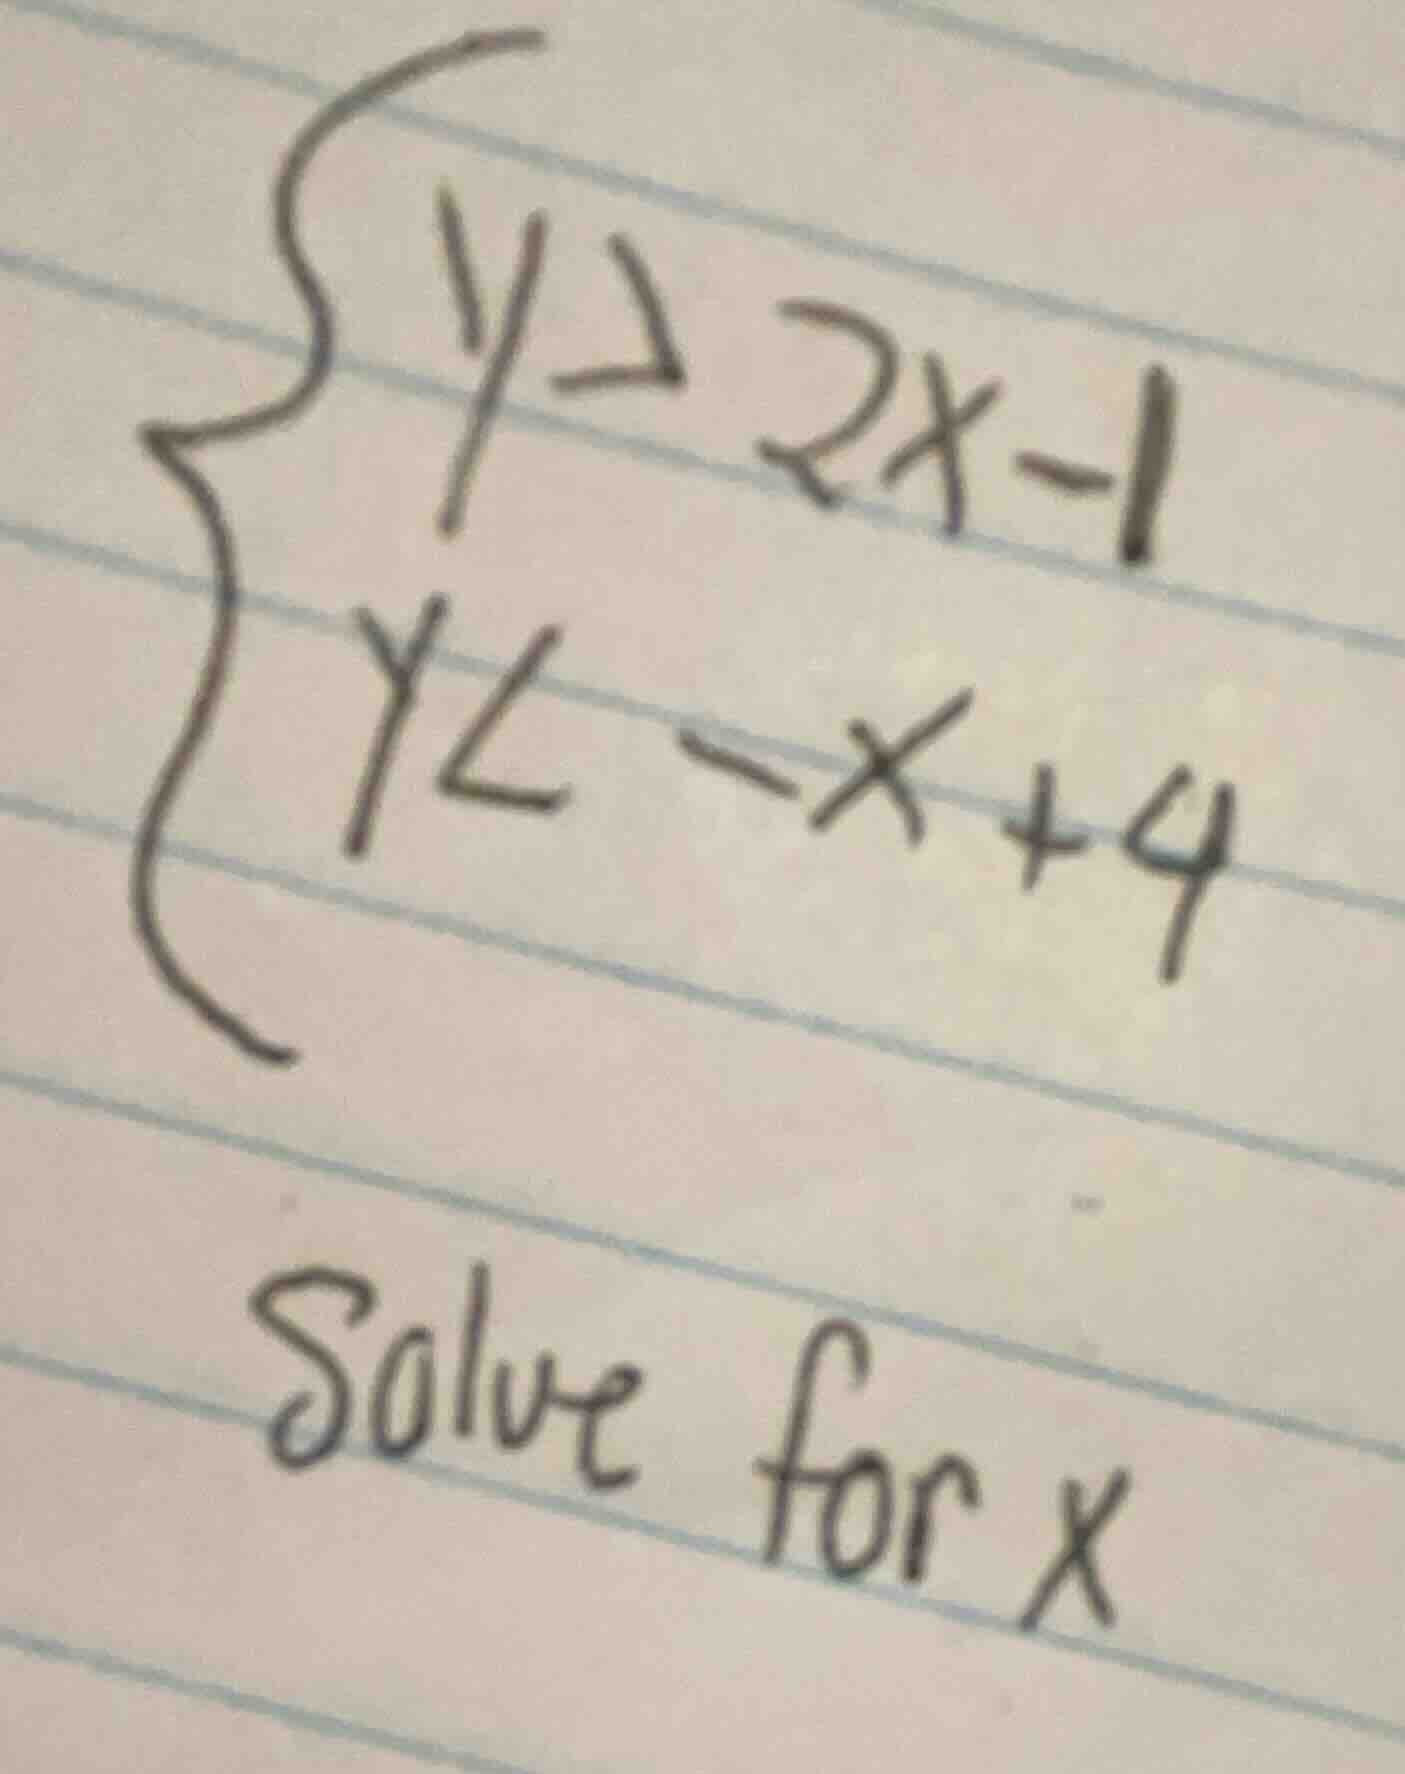 y > 2x - 1
y < - x + 4
Solve for x